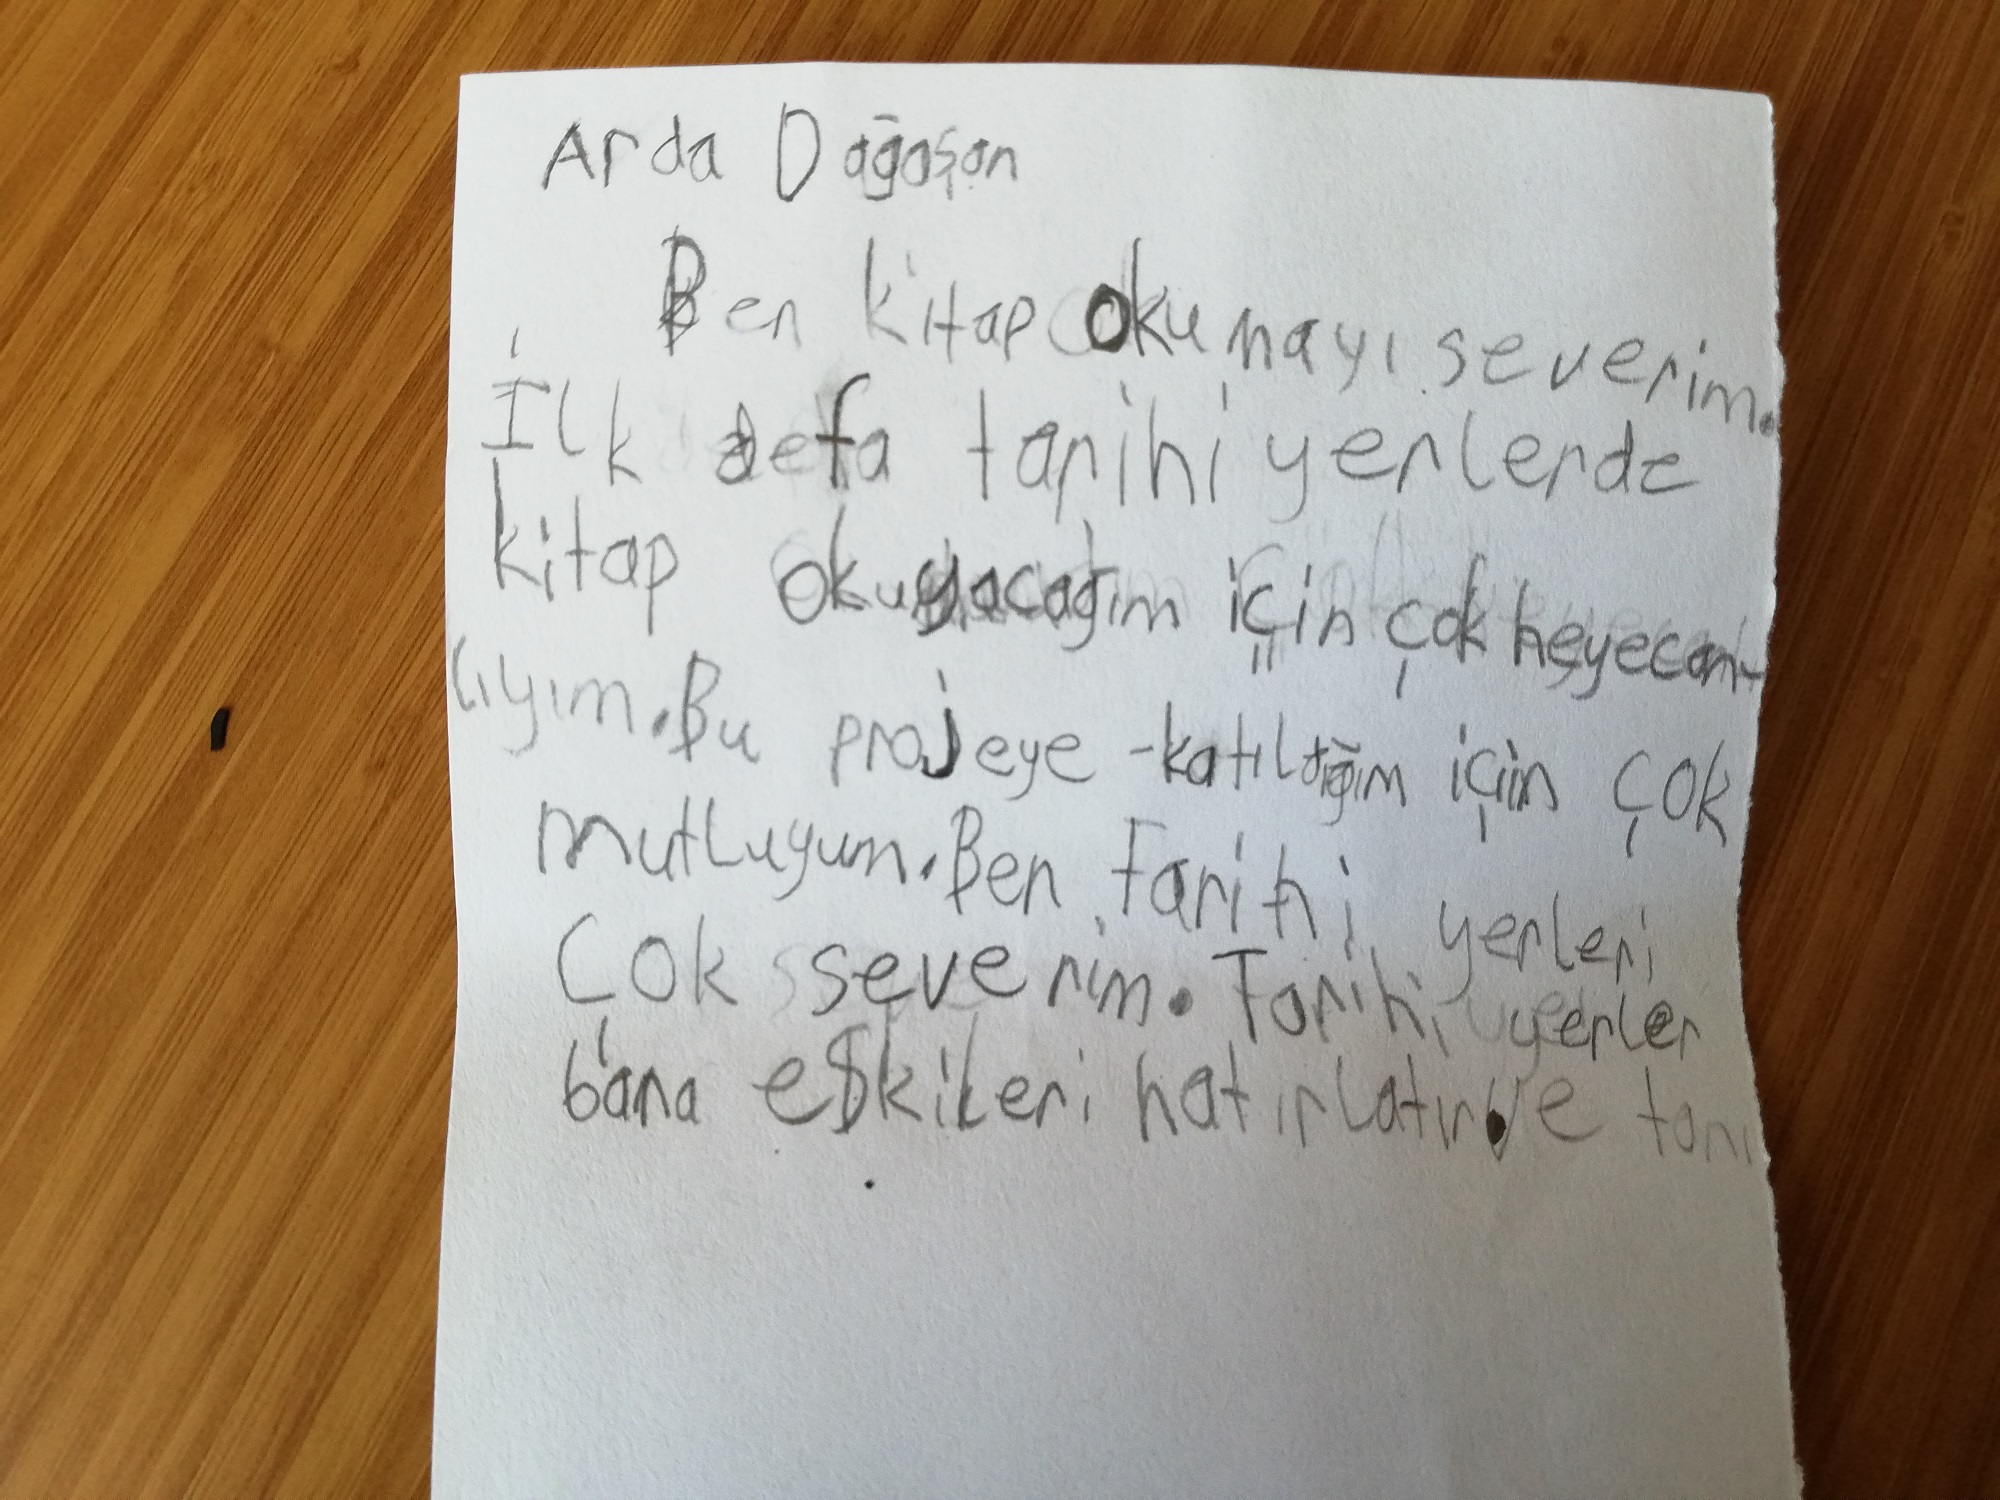 Arda Dağaşan
Ben kitap okumayı severim.
İlk defa tarihi yerlerde
kitap okuyacağım için çok heyecan-
lıyım. Bu projeye katıldığım için çok
mutluyum. Ben tarihi yerleri
Çok severim. Tarihi yerler
bana eskileri hatırlatır ve tanı